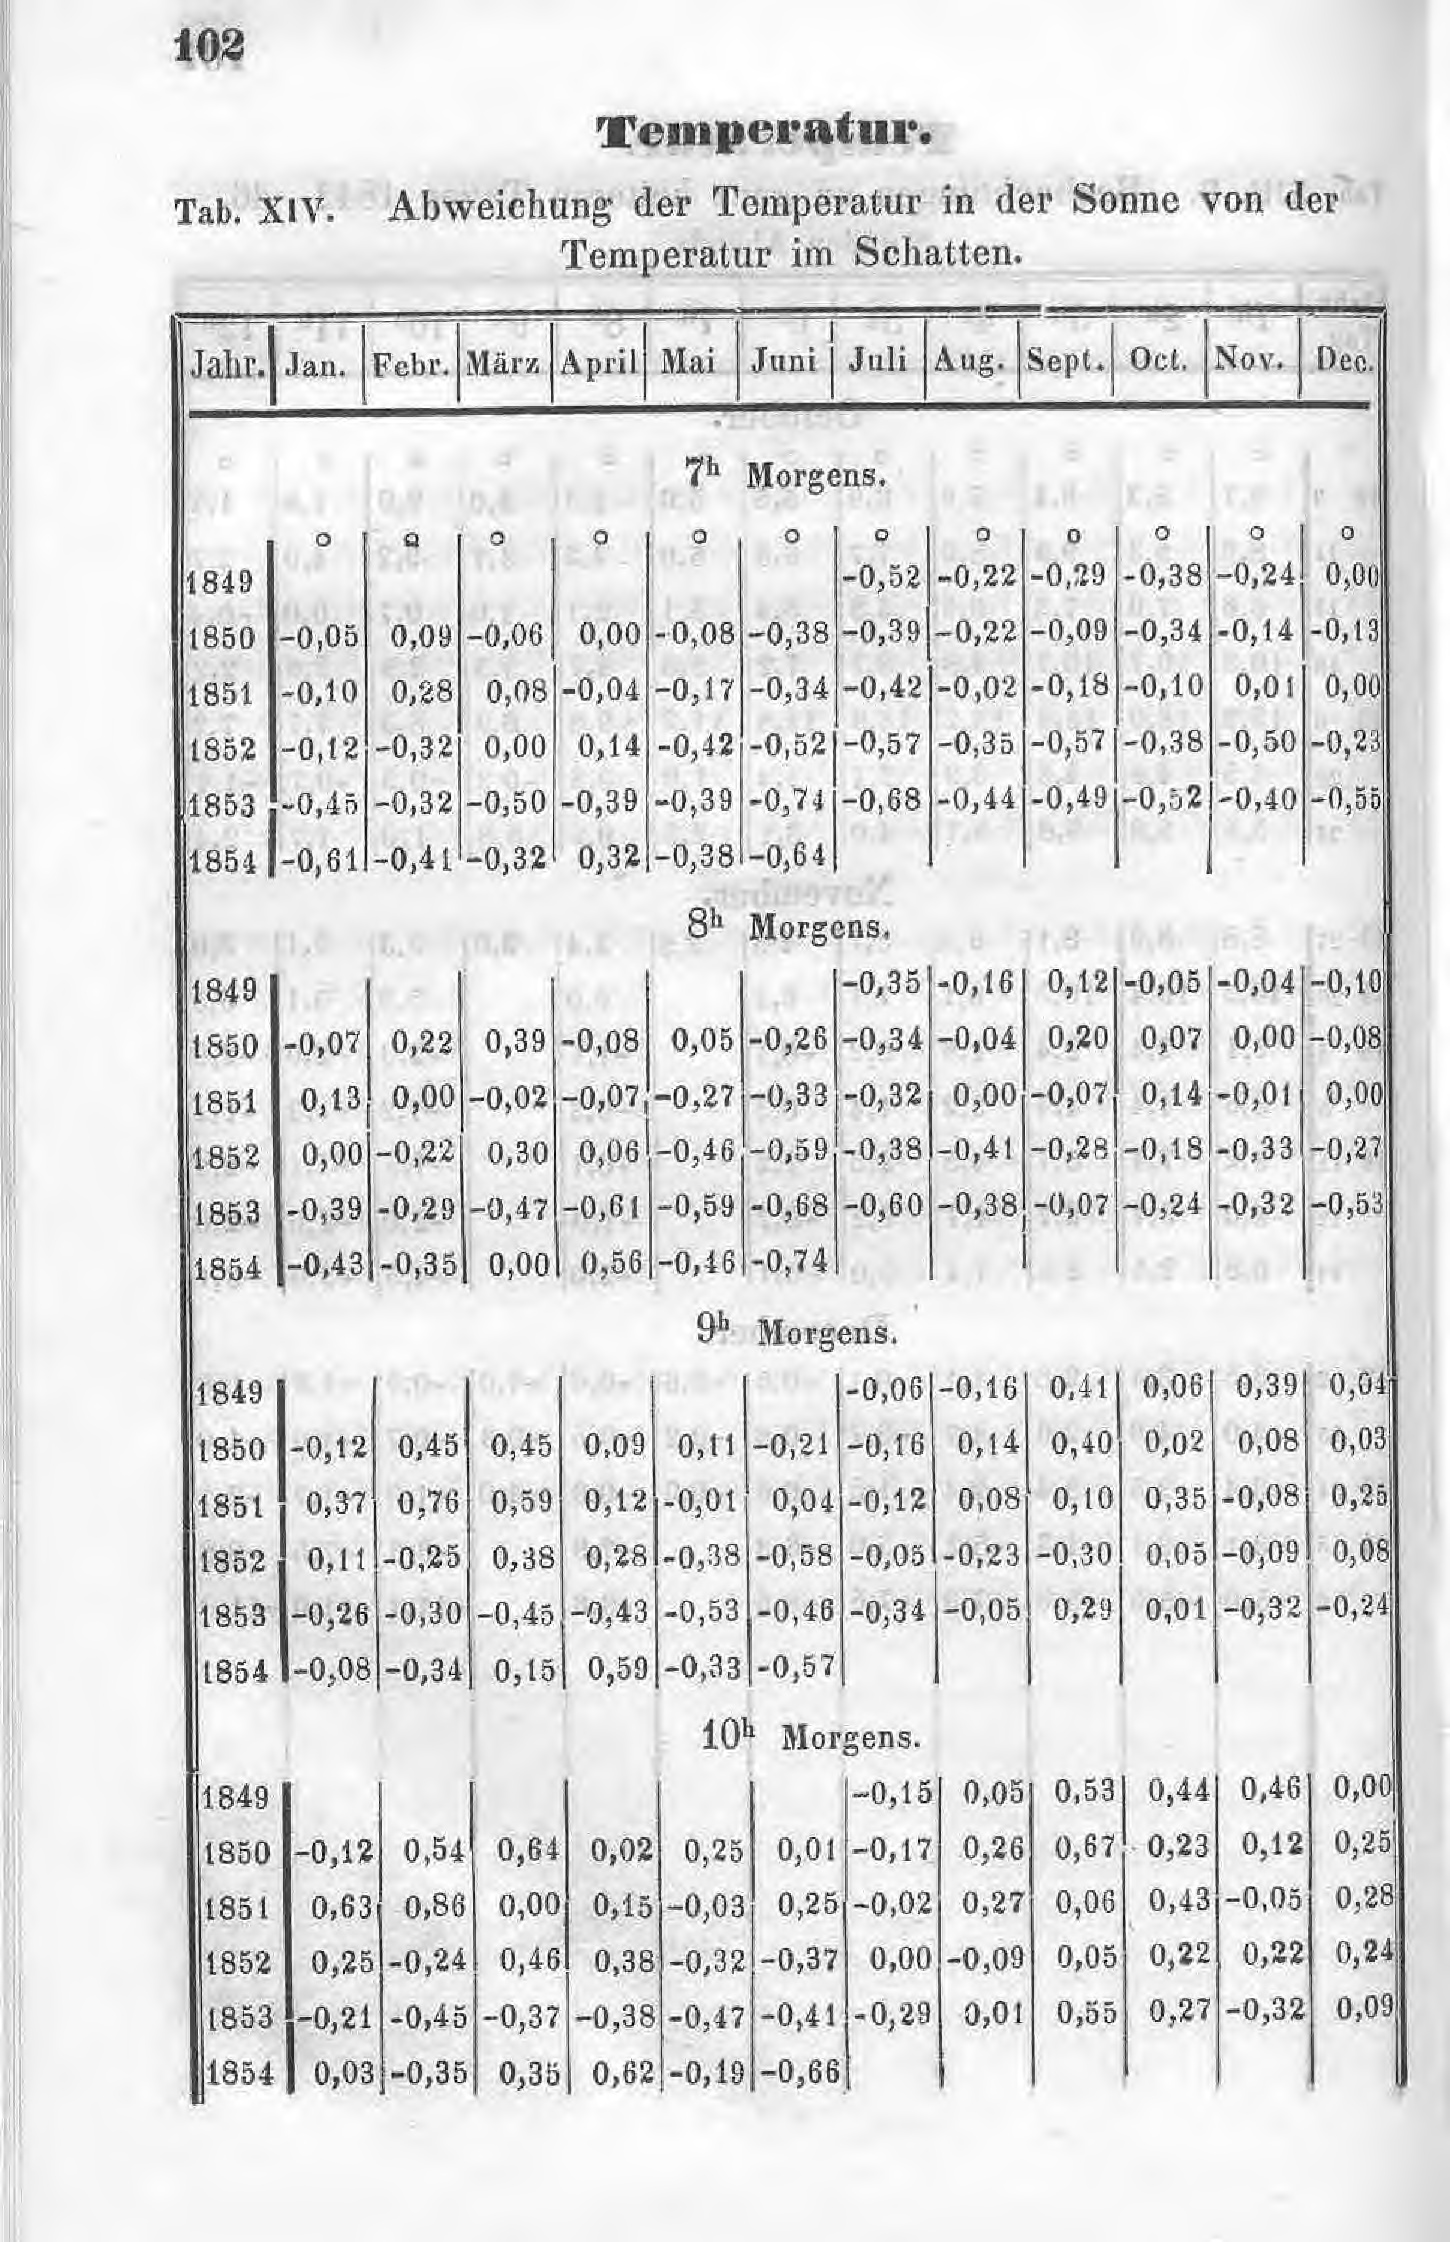 102
Temperatur.
Tab. XIV. Abweichung der Temperatur in der Sonne von der
Temperatur im Schatten.
Jahr. Jan. Febr. März April Mai Juni Juli Aug. Sept. Oct. Nov. Dec.
7h Morgens.
o o o o o o o o o o o o
1849 -0,52 -0,22 -0,29 -0,38 -0,24 0,00
1850 -0,05 0,09 -0,06 0,00 -0,08 -0,38 -0,39 -0,22 -0,09 -0,34 -0,14 -0,13
1851 -0,10 0,28 0,08 -0,04 -0,17 -0,34 -0,42 -0,02 -0,18 -0,10 0,01 0,00
1852 -0,12 -0,32 0,00 0,14 -0,42 -0,52 -0,57 -0,35 -0,57 -0,38 -0,50 -0,23
1853 -0,45 -0,32 -0,50 -0,39 -0,39 -0,74 -0,68 -0,44 -0,49 -0,52 -0,40 -0,55
1854 -0,61 -0,41 -0,32 0,32 -0,38 -0,64
8h Morgens.
1849 -0,35 -0,16 0,12 -0,05 -0,04 -0,10
1850 -0,07 0,22 0,39 -0,08 0,05 -0,26 -0,34 -0,04 0,20 0,07 0,00 -0,08
1851 0,13 0,00 -0,02 -0,07 -0,27 -0,33 -0,32 0,00 -0,07 0,14 -0,01 0,00
1852 0,00 -0,22 0,30 0,06 -0,46 -0,59 -0,38 -0,41 -0,28 -0,18 -0,33 -0,27
1853 -0,39 -0,29 -0,47 -0,61 -0,59 -0,68 -0,60 -0,38 -0,07 -0,24 -0,32 -0,53
1854 -0,43 -0,35 0,00 0,56 -0,46 -0,74
9h Morgens.
1849 -0,06 -0,16 0,41 0,06 0,39 0,04
1850 -0,12 0,45 0,45 0,09 0,11 -0,21 -0,16 0,14 0,40 0,02 0,08 0,03
1851 0,37 0,76 0,59 0,12 -0,01 0,04 -0,12 0,08 0,10 0,35 -0,08 0,25
1852 0,11 -0,25 0,38 0,28 -0,38 -0,58 -0,05 -0,23 -0,30 0,05 -0,09 0,08
1853 -0,26 -0,30 -0,45 -0,43 -0,53 -0,46 -0,34 -0,05 0,29 0,01 -0,32 -0,24
1854 -0,08 -0,34 0,15 0,59 -0,33 -0,57
10h Morgens.
1849 -0,15 0,05 0,53 0,44 0,46 0,00
1850 -0,12 0,54 0,64 0,02 0,25 0,01 -0,17 0,26 0,67 0,23 0,12 0,25
1851 0,63 0,86 0,00 0,15 -0,03 0,25 -0,02 0,27 0,06 0,43 -0,05 0,28
1852 0,25 -0,24 0,46 0,38 -0,32 -0,37 0,00 -0,09 0,05 0,22 0,22 0,24
1853 -0,21 -0,45 -0,37 -0,38 -0,47 -0,41 -0,29 0,01 0,55 0,27 -0,32 0,09
1854 0,03 -0,35 0,35 0,62 -0,19 -0,66